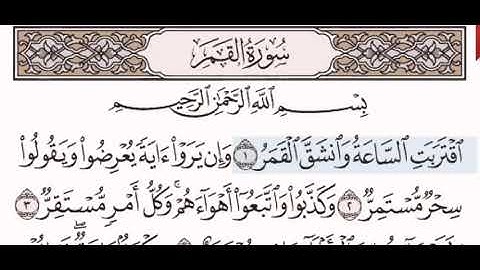 سُورَةُ القَمَرِ
بِسْمِ اللَّهِ الرَّحْمَٰنِ الرَّحِيمِ
ٱقْتَرَبَتِ ٱلسَّاعَةُ وَٱنشَقَّ ٱلْقَمَرُ ١ وَإِن يَرَوْا۟ ءَايَةً يُعْرِضُوا۟ وَيَقُولُوا۟
سِحْرٌ مُّسْتَمِرٌّ ٢ وَكَذَّبُوا۟ وَٱتَّبَعُوٓا۟ أَهْوَآءَهُمْ ۚ وَكُلُّ أَمْرٍ مُّسْتَقِرٌّ ٣